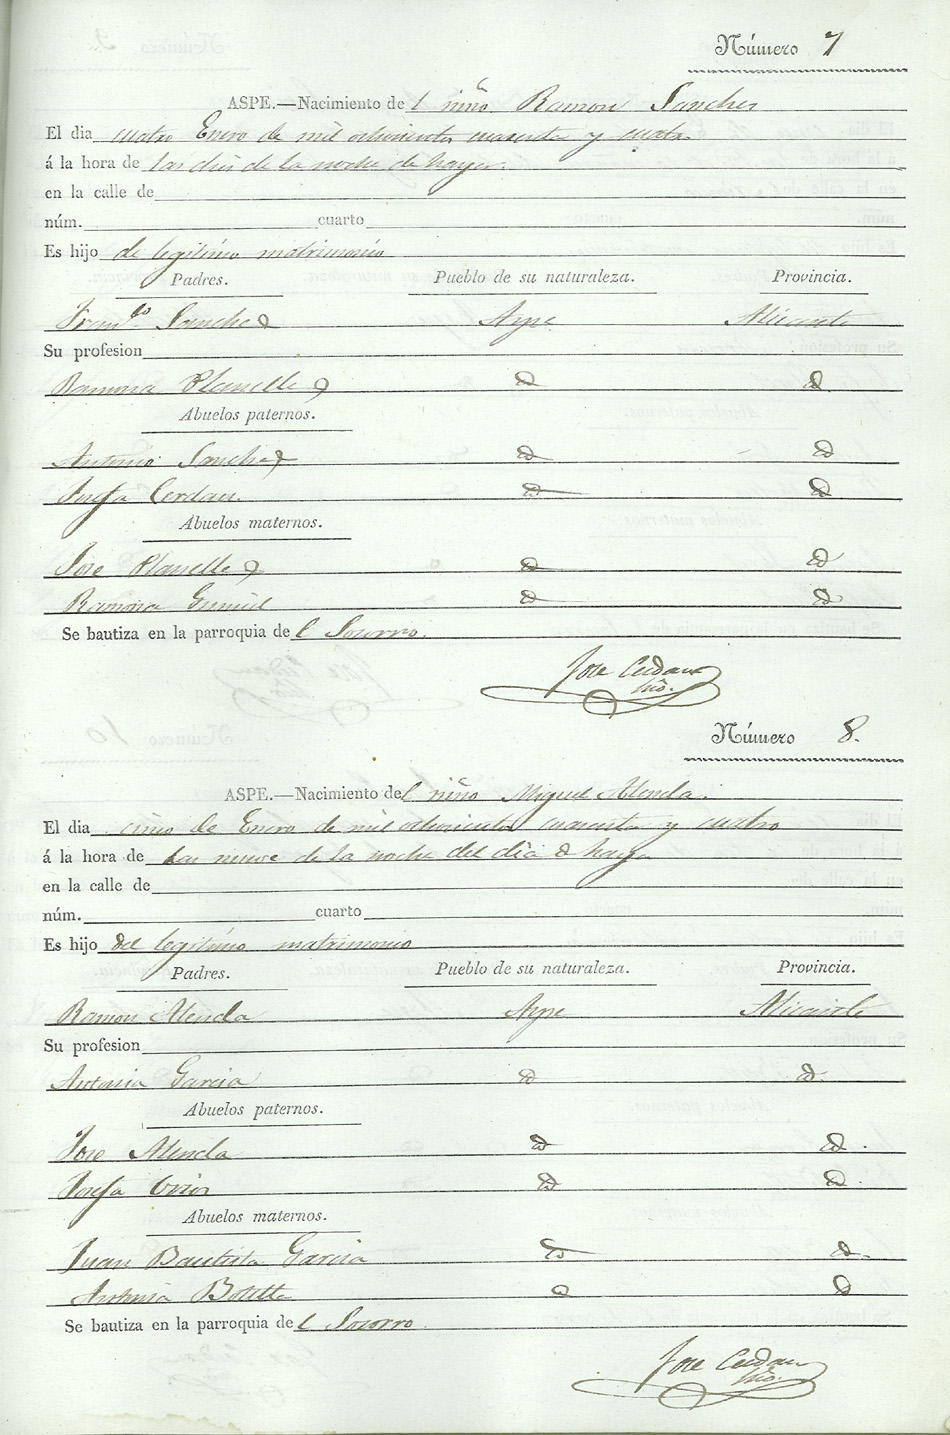 Número 7
ASPE.—Nacimiento del niño Ramon Sanches
El dia cuatro Enero de mil ochocientos cuarenta y cuatro
á la hora de las dies de la noche de hayer.
en la calle de
núm. cuarto
Es hijo de legitimo matrimonio
Padres. Pueblo de su naturaleza. Provincia.
Franco Sanches Aspe Alicante
Su profesion
Ramona Planelles id id
Abuelos paternos.
Antonio Sanches id id
Josefa Cerdan. id id
Abuelos maternos.
Jose Planelles id id
Ramona id id
Se bautiza en la parroquia del Socorro.
Jose Cerdan
Número 8.
ASPE.—Nacimiento del niño Miguel Alenda.
El dia cinco de Enero de mil ochocientos cuarenta y cuatro
á la hora de las nueve de la noche del dia de hayer
en la calle de
núm. cuarto
Es hijo del legitimo matrimonio
Padres. Pueblo de su naturaleza. Provincia.
Ramon Alenda Aspe Alicante
Su profesion
Antonia Garcia id id.
Abuelos paternos.
Jose Alenda id id.
Josefa id id.
Abuelos maternos.
Juan Bautista Garcia id id.
Antonia Botella id id
Se bautiza en la parroquia del Socorro.
Jose Cerdan